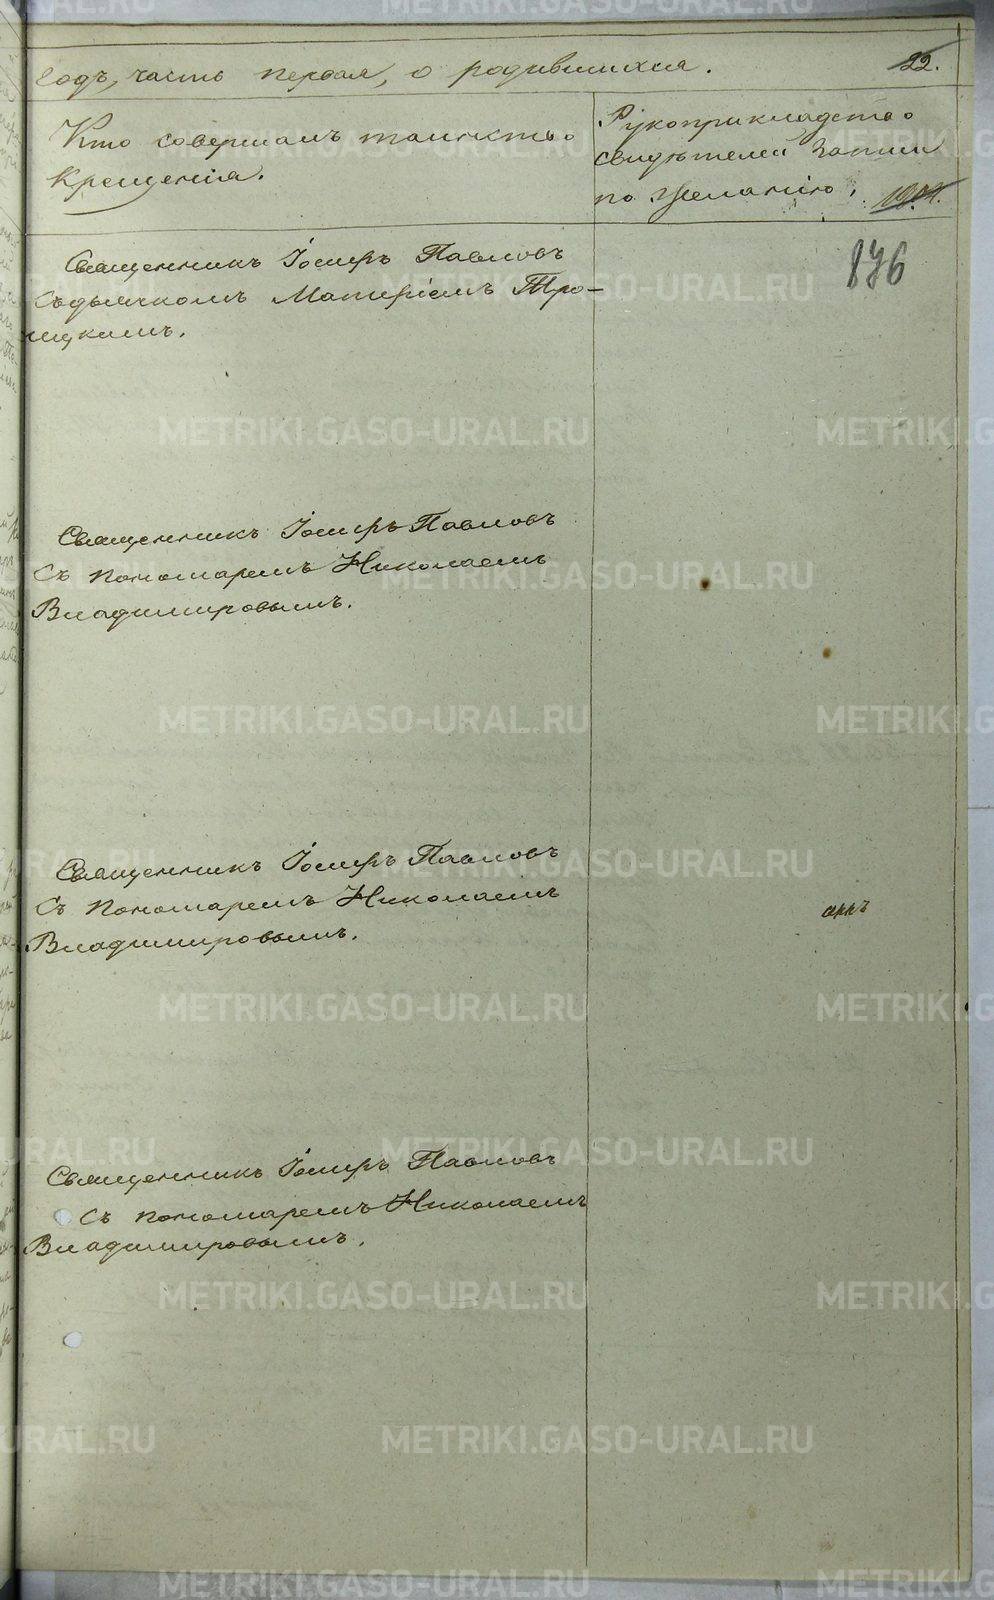 годъ, часть первая, о родившихся.
22.
Кто совершалъ таинство
Крещенія.
Рукоприкладство
свидѣтелей записи
по желанію.
876
Священникъ Іосифъ Павловъ
Съ дьячкомъ Матѳіемъ Тро-
ицкимъ.
Священникъ Іосифъ Павловъ
Съ пономаремъ Николаемъ
Владиміровымъ.
Священникъ Іосифъ Павловъ
Съ пономаремъ Николаемъ
Владиміровымъ.
Священникъ Іосифъ Павловъ
Съ пономаремъ Николаемъ
Владиміровымъ.
METRIKI.GASO-URAL.RU